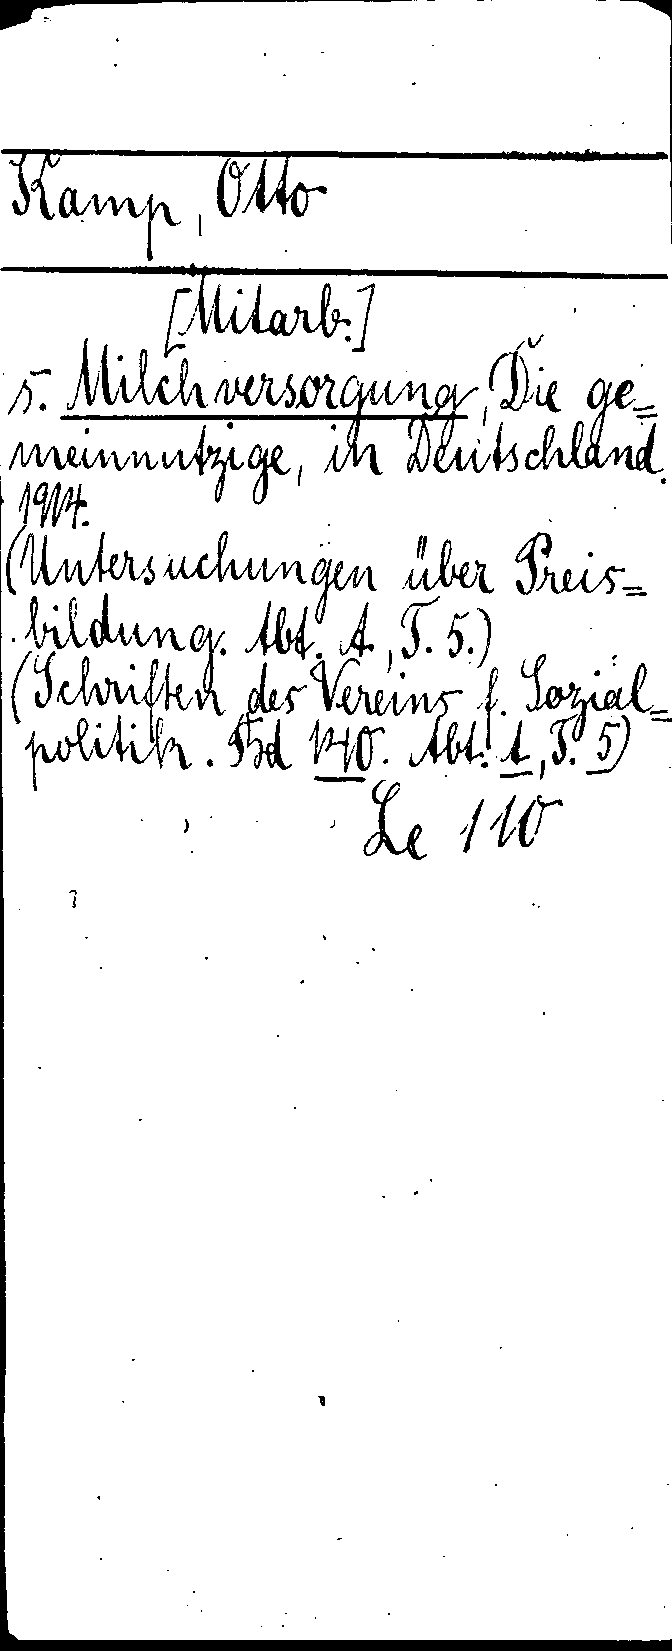 Kamp, Otto
[Mitarb.]
s. Milchversorgung, Die ge=
meinnützige, in Deutschland.
1914.
(Untersuchungen über Preis=
bildung. Abt. A, T. 5.)
(Schriften des Vereins f. Sozial=
politik. Bd 140. Abt. A, T. 5)
Le 110